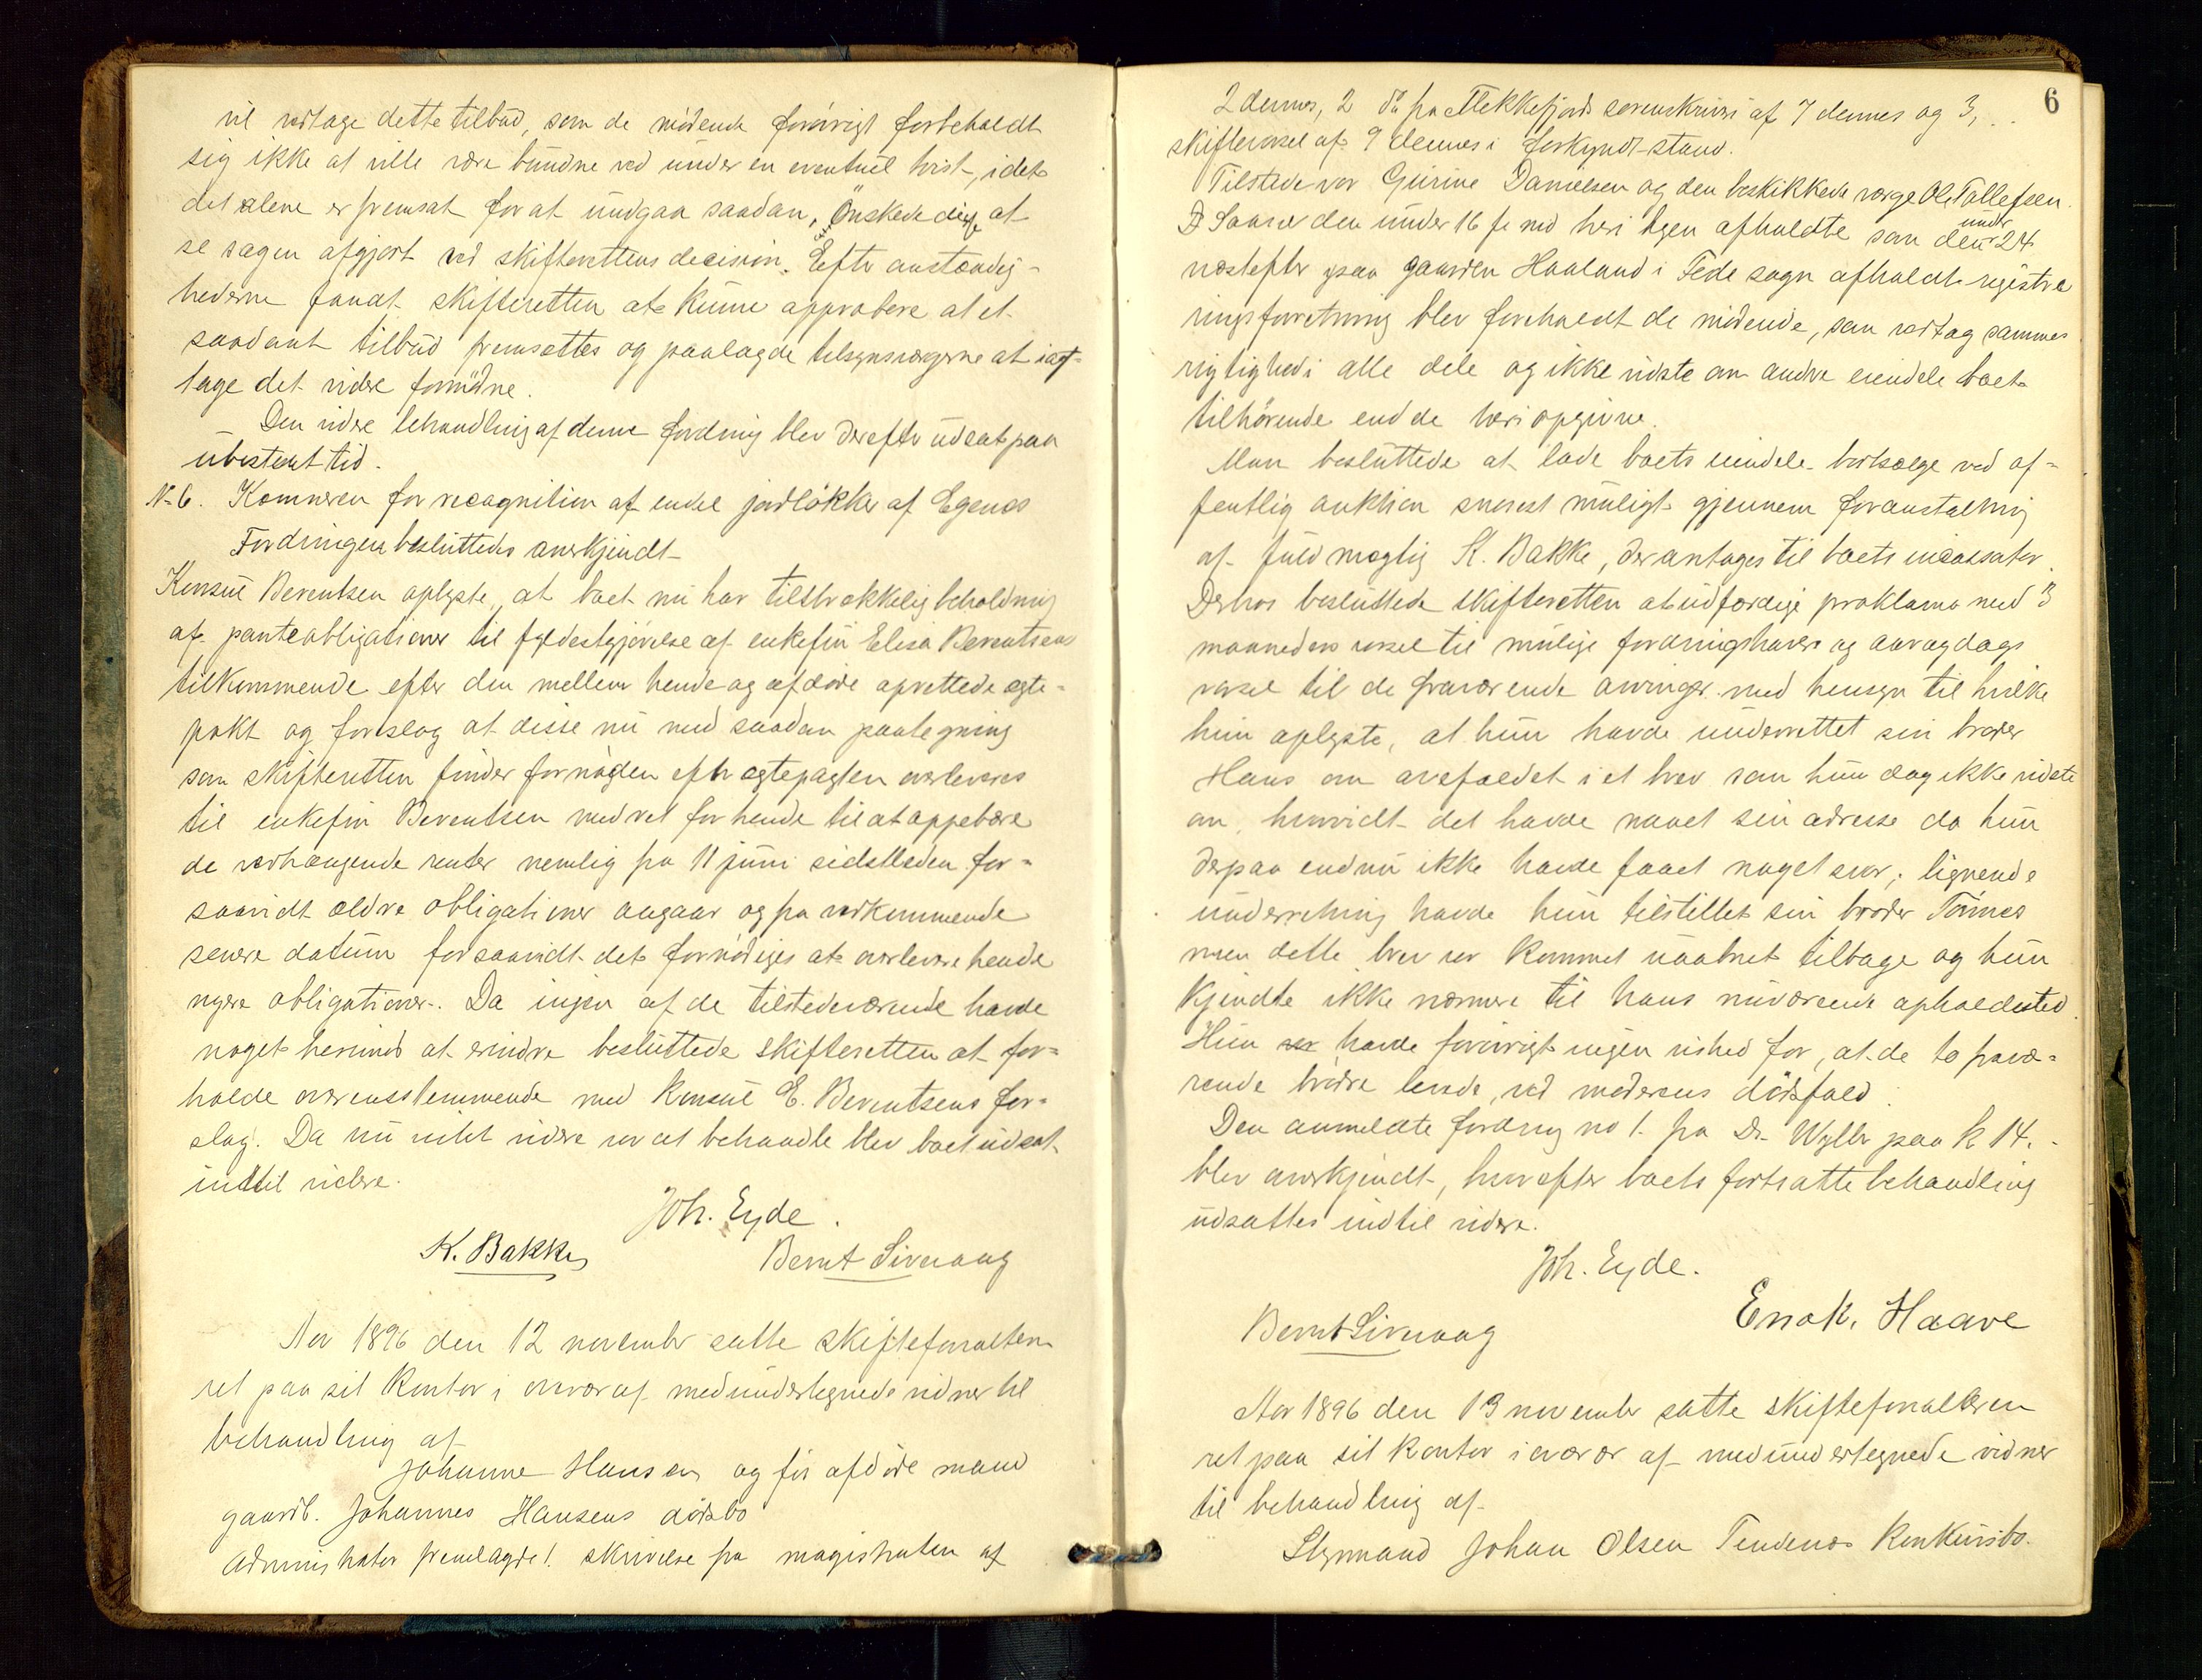 vil vedtage dette tilbud, som de mödende forövrigt forbeholdt
sig ikke at ville være bundne ved under en eventuel tvist, idet
det alene er fremsat for at undgaa saadan. Önskede disse at
se sagen afgjort ved skifterettens decision. Efter omstændig-
hederne fandt skifteretten at kunne approbere at et
saadant tilbud fremsattes og paalagde tilsynsværgerne at iagt-
tage det videre fornödne.
Den videre behandling af denne fordring blev derefter udsat paa
ubestemt tid.
No 6. Kæmneren for recognition af endel jordlökker af Egenæs
Fordringen besluttedes anerkjendt
Konsul Berentsen oplyste, at boet nu har tilstrækkelig beholdning
af panteobligationer til fyldestgjörelse af enkefru Elisa Berentsens
tilkommende efter den mellem hende og afdöde oprettede ægte-
pakt og foreslog at disse nu med saadan paategning
som skifteretten finder fornöden efter ægtepagten overleveres
til enkefru Berentsen med ret for hende til at oppebære
de vedhængende renter nemlig fra 11 juni sidstleden for-
saavidt ældre obligationer angaar og fra vedkommende
senere datum forsaavidt det fornödiges at overlevere hende
nyere obligationer. Da ingen af de tilstedeværende havde
noget herimod at erindre besluttede skifteretten at for-
holde overensstemmende med konsul E. Berentsens for-
slag. Da nu intet videre var at behandle blev boet udsat
indtil videre.
Joh. Eyde.
K. Bakke Bernt Sivevaag
Aar 1896 den 12 november satte skifteforvalteren
ret paa sit kontor i overvær af medundertegnede vidner til
behandling af
Johanne Hansen og för afdöde mand
gaardb. Johannes Hansens dödsbo
Administrator fremlagde 1. skrivelse fra magistraten af
6
2 dennes, 2 do fra Flekkefjords sorenskriveri af 7 dennes og 3,
skiftevarsel af 9 dennes i forkyndt stand.
Tilstede var Gurine Danielsen og den beskikkede værge Ole Tollefsen.
Saavel den under 16 f m her i byen afholdte som den under 24
næstefter paa gaarden Haaland i Fede sogn afholdt registre
ringsforretning blev foreholdt de mödende, som vedtog sammes
rigtighed i alle dele og ikke vidste om andre eiendele boet
tilhörende end de heri opgivne.
Man besluttede at lade boets eiendele bortsælge ved of-
fentlig auktion snarest muligt gjennem foranstaltning
af fuldmægtig K. Bakke, der antages til boets incassator.
Derhos besluttede skifteretten at udfærdige proklama med 3
maaneders varsel til mulige fordringshavere og aar og dags
varsel til de fraværende arvinger med hensyn til hvilke
hun oplyste, at hun havde underrettet sin broder
Hans om arvefaldet i et brev som hun dog ikke vidste
om, hvorvidt det havde naaet sin adresse da hun
derpaa endnu ikke havde faaet noget svar; lignende
underretning havde hun tilstillet sin broder Tönnes
men dette brev var kommet uaabnet tilbage og hun
kjendte ikke nærmere til hans nuværende opholdssted.
Hun havde forövrigt ingen vished for, at de to fravæ-
rende brödre levede, ved moderens dödsfald.
Den anmeldte fordring no 1 fra Dr Wyller paa k 14.-
blev anerkjendt, hvorefter boets fortsatte behandling
udsattes indtil videre.
Joh. Eyde.
Bernt Sivevaag Enok. Haave
Aar 1896 den 13 november satte skifteforvalteren
ret paa sit kontor i overvær af medundertegnede vidner
til behandling af
Styrmand Johan Olsen Tendenes konkursbo.